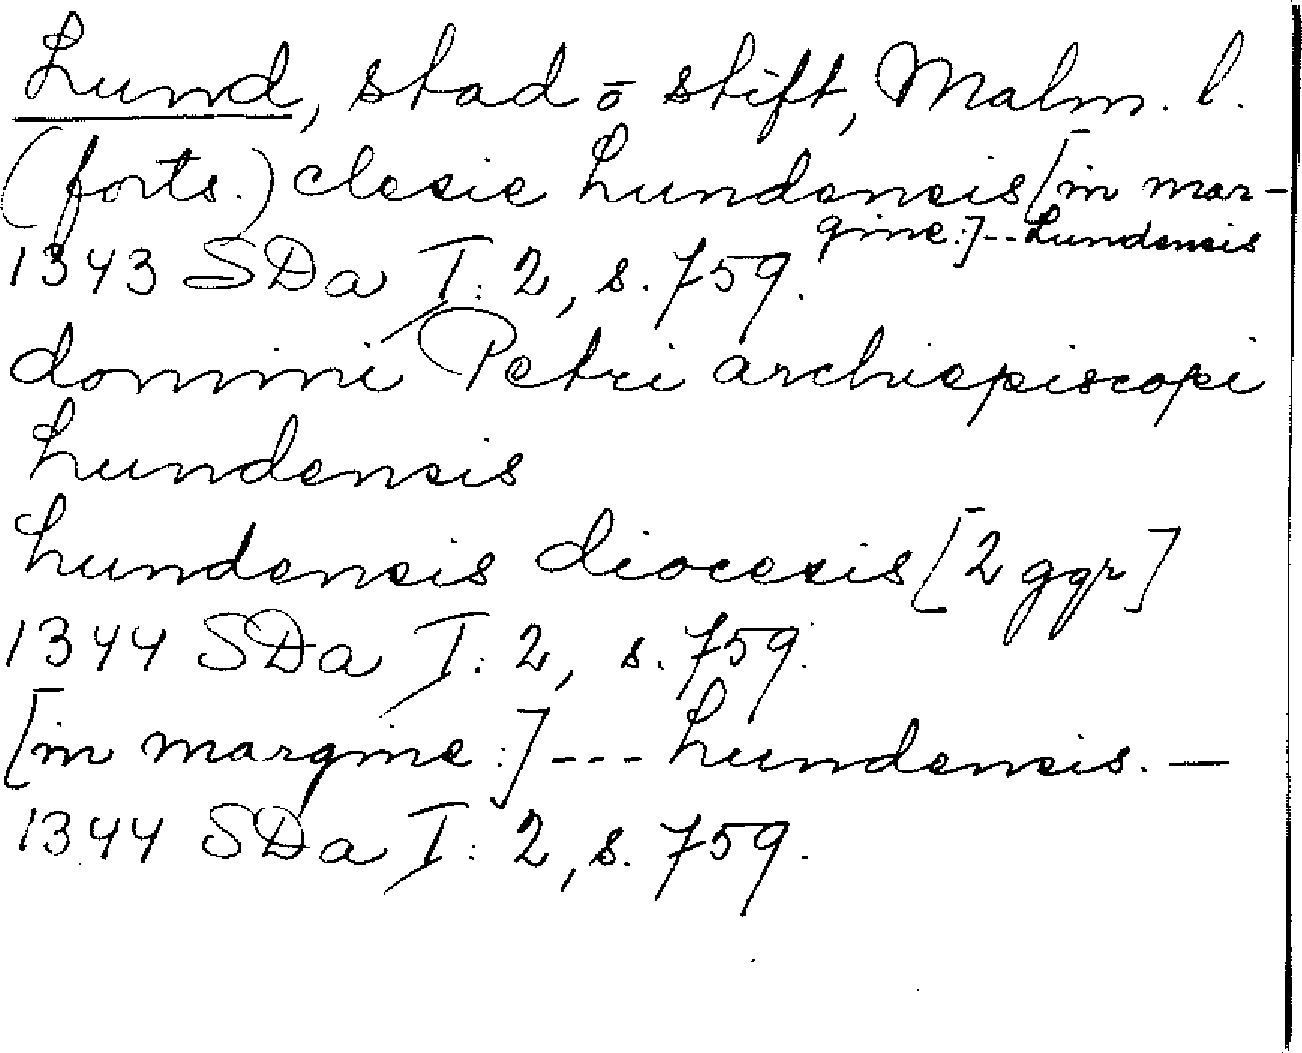 Lund, stad ō stift, Malm. l.
(forts.) clesie Lundensis [in mar-
gine:] -- Lundensis
1343 SDa I: 2, s. 759.
domini Petri archiepiscopi
Lundensis
Lundensis diocesis [2 ggr]
1344 SDa I: 2, s. 759.
[in margine:] --- Lundensis. —
1344 SDa I: 2, s. 759.